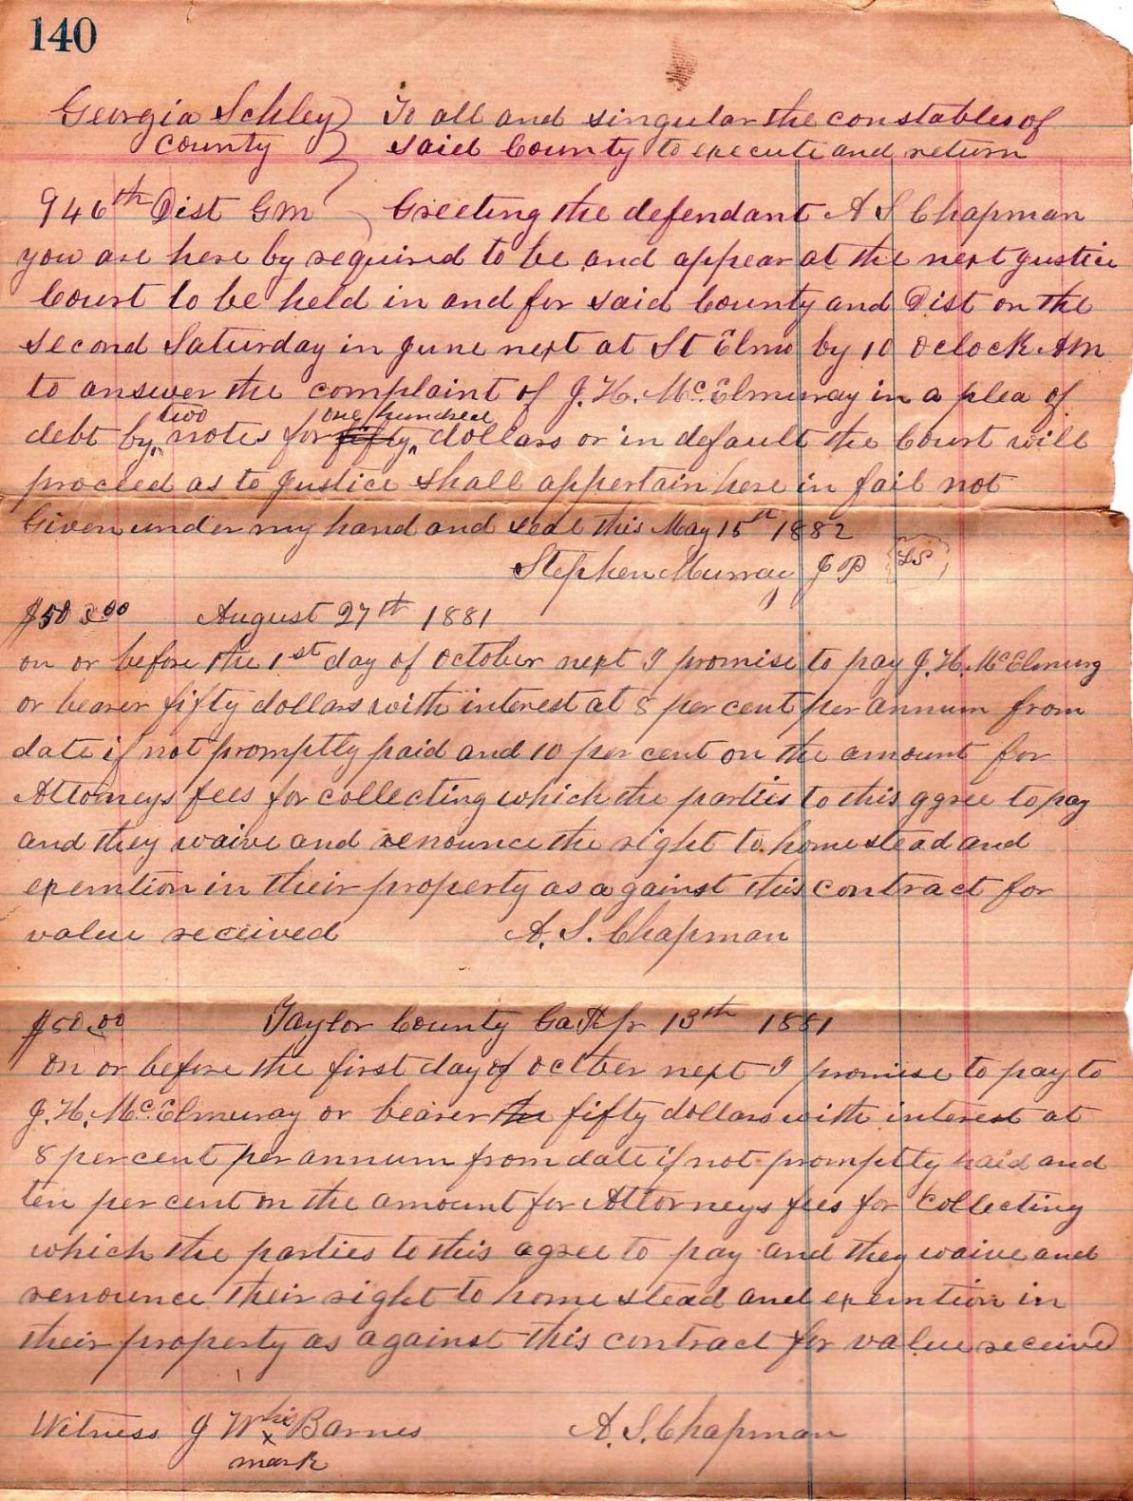 140
Georgia Schley } To all and singular the constables of
County } said County to execute and return
946th Dist GM } Greeting the defendant A S Chapman
you are here by required to be and appear at the next justice
Court to be held in and for said County and Dist on the
second Saturday in June next at St Elmo by 10 Oclock AM
to answer the complaint of J. H. McElmurray in a plea of
two one hundred
debt by notes for fifty dollars or in default the Court will
proceed as to justice shall appertain here in fail not
Given under my hand and seal this May 15th 1882
Stephen Murray J P {LS}
$50.00 August 27th 1881
on or before the 1st day of October next I promise to pay J. H. McElmurg
or bearer fifty dollars with interest at 8 per cent per annum from
date if not promptly paid and 10 per cent on the amount for
Attorneys fees for collecting which the parties to this agree to pay
and they waive and renounce the right to homestead and
exemtion in their property as against this contract for
value received A. S. Chapman
$50.00 Taylor County Ga Apr 13th 1881
on or before the first day of octber next I promise to pay to
J. H. McElmuray or bearer fifty dollars with interest at
8 per cent per annum from date if not promptly paid and
ten per cent on the amount for Attorneys fees for collecting
which the parties to this agree to pay and they waive and
renounce their right to home stead and exemtion in
their property as against this contract for value received
Witness J W his x Barnes A. S. Chapman
mark